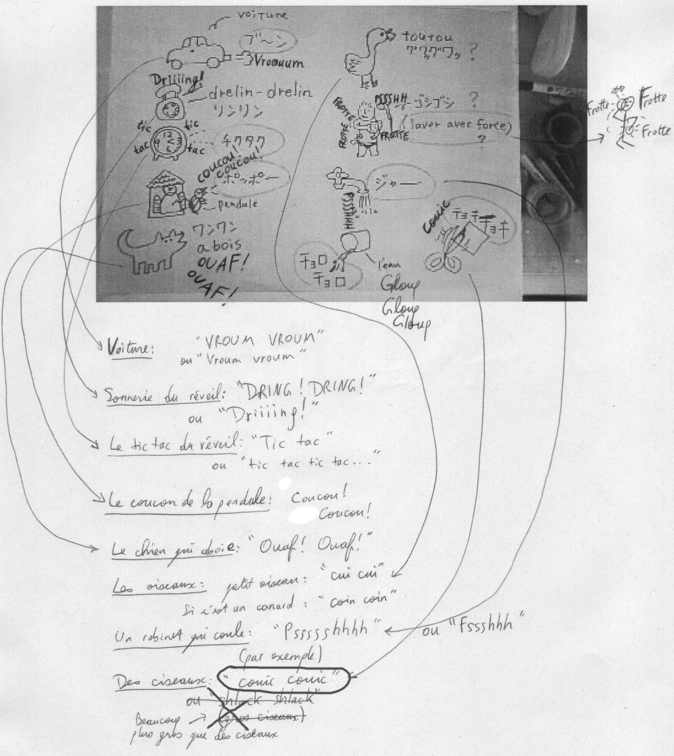 voiture
ブーン
Vroouum
Driiiing!
drelin-drelin
リンリン
tic
tic
tac
tac
チクタク
coucou
coucou!
ポッポー
pendule
ワンワン
abois
OUAF!
OUAF!
toutou
?
PSSSHH
ゴシゴシ ?
FROTTE
FROTTE
FROTTE
(laver avec force)
?
ジャー
チョロ
チョロ
l'eau
Gloup
Gloup
Gloup
couic
チョキチョキ
Frotte
Frotte
Frotte
Voiture: "VROUM VROUM"
ou "Vroum vroum"
Sonnerie du réveil: "DRING! DRING!"
ou "Driiiing!"
Le tic tac du réveil: "Tic tac"
ou "tic tac tic tac..."
Le coucou de la pendule: Coucou!
Coucou!
Le chien qui aboie: "Ouaf! Ouaf!"
Les oiseaux: petit oiseau: "cui cui"
Si c'est un canard: "coin coin"
Un robinet qui coule: "Psssssshhhh" ou "Fssshhh"
(par exemple)
Des ciseaux: "couic couic"
ou "shlack shlack"
Beaucoup (gros ciseaux)
plus gros que des ciseaux